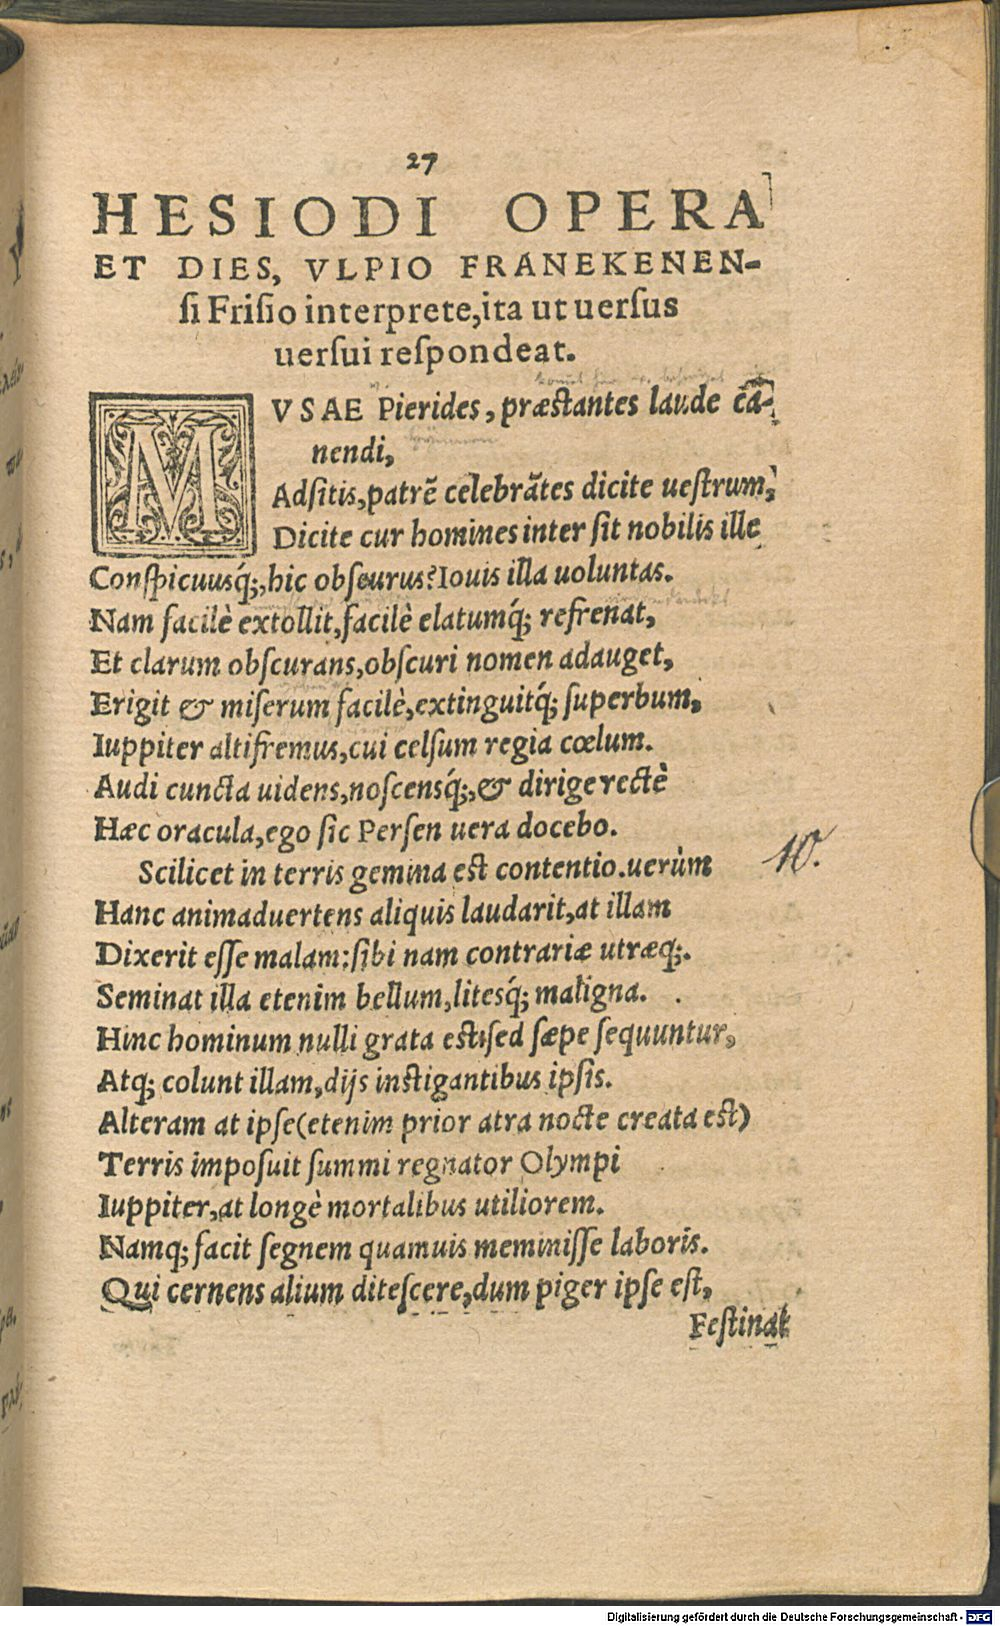 27
HESIODI OPERA
ET DIES, VLPIO FRANEKENEN-
ſi Friſio interprete,ita ut uerſus
uerſui reſpondeat.
MVSAE Pierides, præſtantes laude cā-
nendi,
Adſitis,patrē celebrātes dicite ueſtrum,
Dicite cur homines inter ſit nobilis ille
Conſpicuusq́;,hic obſcurus?Iouis illa uoluntas.
Nam facilè extollit,facilè elatumq́; refrenat,
Et clarum obſcurans,obſcuri nomen adauget,
Erigit & miſerum facilè,extinguitq́; ſuperbum,
Iuppiter altifremus,cui celſum regia cœlum.
Audi cuncta uidens,noſcensq́;,& dirige rectè
Hæc oracula,ego ſic Perſen uera docebo.
Scilicet in terris gemina eſt contentio.uerùm
10.
Hanc animaduertens aliquis laudarit,at illam
Dixerit eſſe malam:ſibi nam contrariæ utræq;.
Seminat illa etenim bellum,litesq́; maligna.
Hinc hominum nulli grata eſt:ſed ſæpe ſequuntur,
Atq; colunt illam,dijs inſtigantibus ipſis.
Alteram at ipſe(etenim prior atra nocte creata eſt)
Terris impoſuit ſummi regnator Olympi
Iuppiter,at longè mortalibus utiliorem.
Namq; facit ſegnem quamuis meminiſſe laboris.
Qui cernens alium diteſcere,dum piger ipſe eſt,
Feſtinat
Digitalisierung gefördert durch die Deutsche Forschungsgemeinschaft - DFG